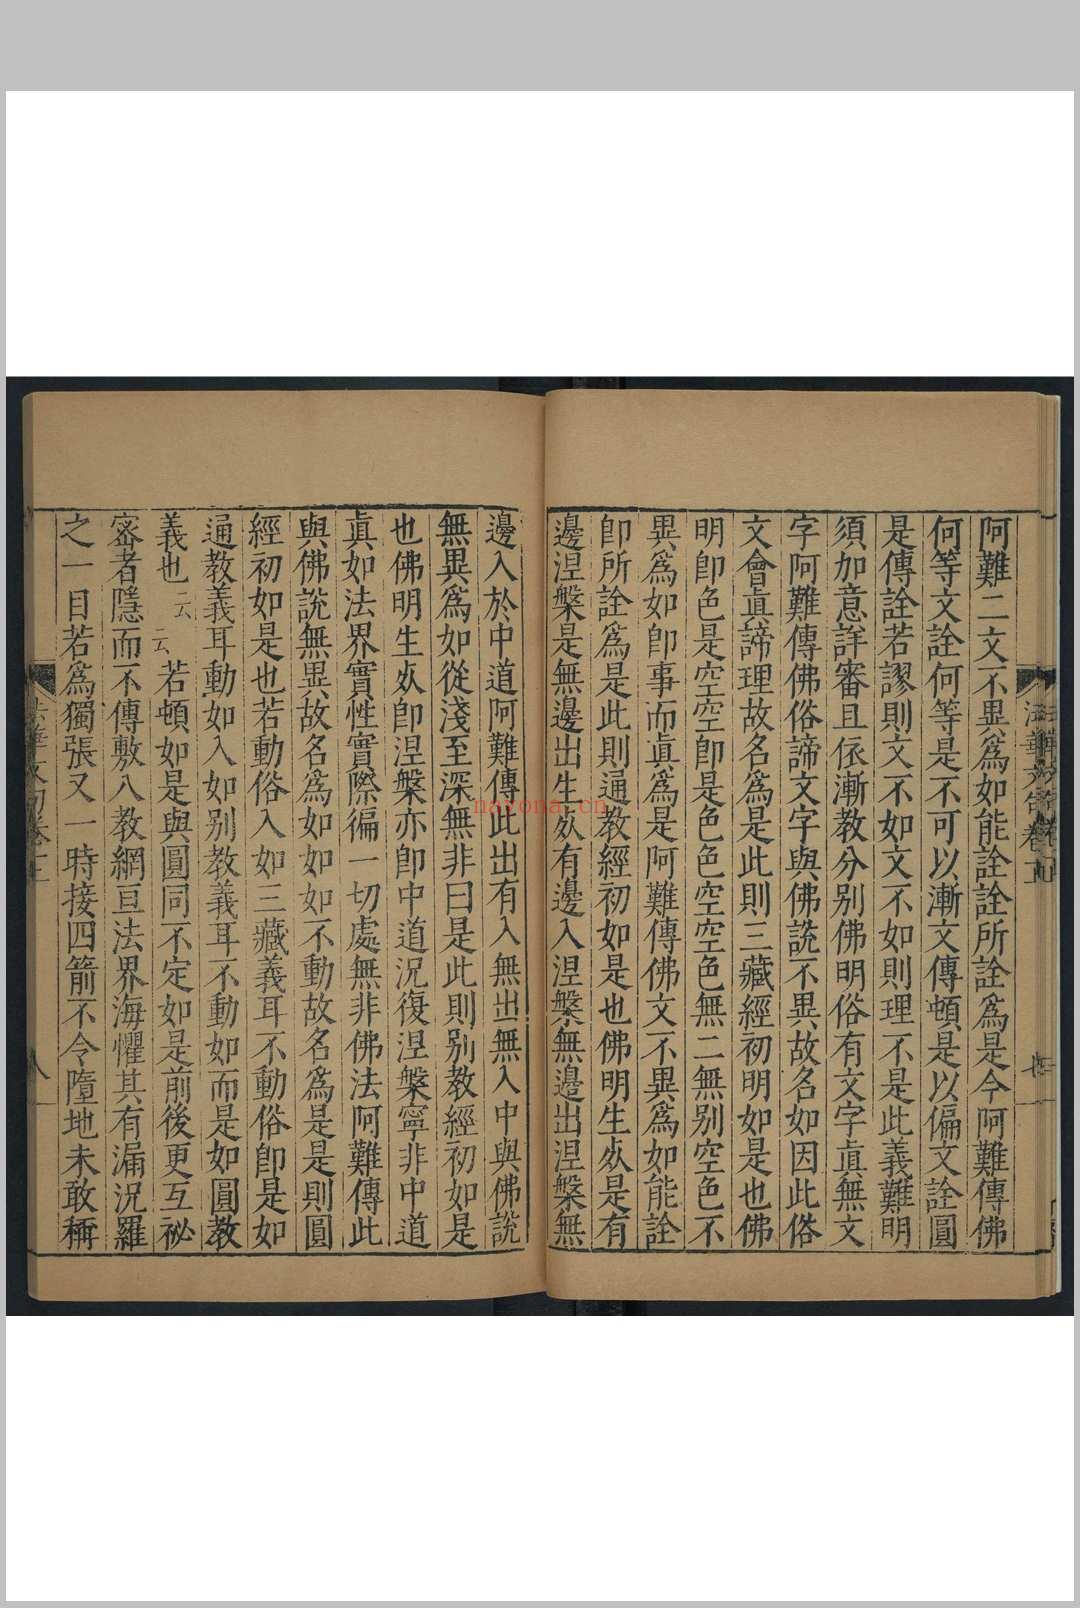 阿難二文不異爲如能詮詮所詮爲是今阿難傳佛
何等文詮何等是不可以漸文傳頓是以偏文詮圓
是傳詮若謬則文不如文不如則理不是此義難明
須加意詳審且依漸教分別佛明俗有文字眞無文
字阿難傳佛俗諦文字與佛說不異故名如因此俗
文會眞諦理故名爲是此則三藏經初明如是也佛
明卽色是空空卽是色色空空色無二無別空色不
異爲如卽事而眞爲是阿難傳佛文不異爲如能詮
卽所詮爲是此則通教經初如是也佛明生死是有
邊涅槃是無邊出生死有邊入涅槃無邊出涅槃無
邊入於中道阿難傳此出有入無出無入中與佛說
無異爲如從淺至深無非曰是此則別教經初如是
也佛明生死卽涅槃亦卽中道況復涅槃寧非中道
眞如法界實性實際徧一切處無非佛法阿難傳此
與佛說無異故名爲如如如不動故名爲是是則圓
經初如是也若動俗入如三藏義耳不動俗卽是如
通教義耳動如入如別教義耳不動如而是如圓教
義也云云若頓如是與圓同不定如是前後更互祕
密者隱而不傳敷八教網亘法界海懼其有漏況羅
之一目若爲獨張又一時接四箭不令墮地未敢稱
法華文句卷一
nayona.cn